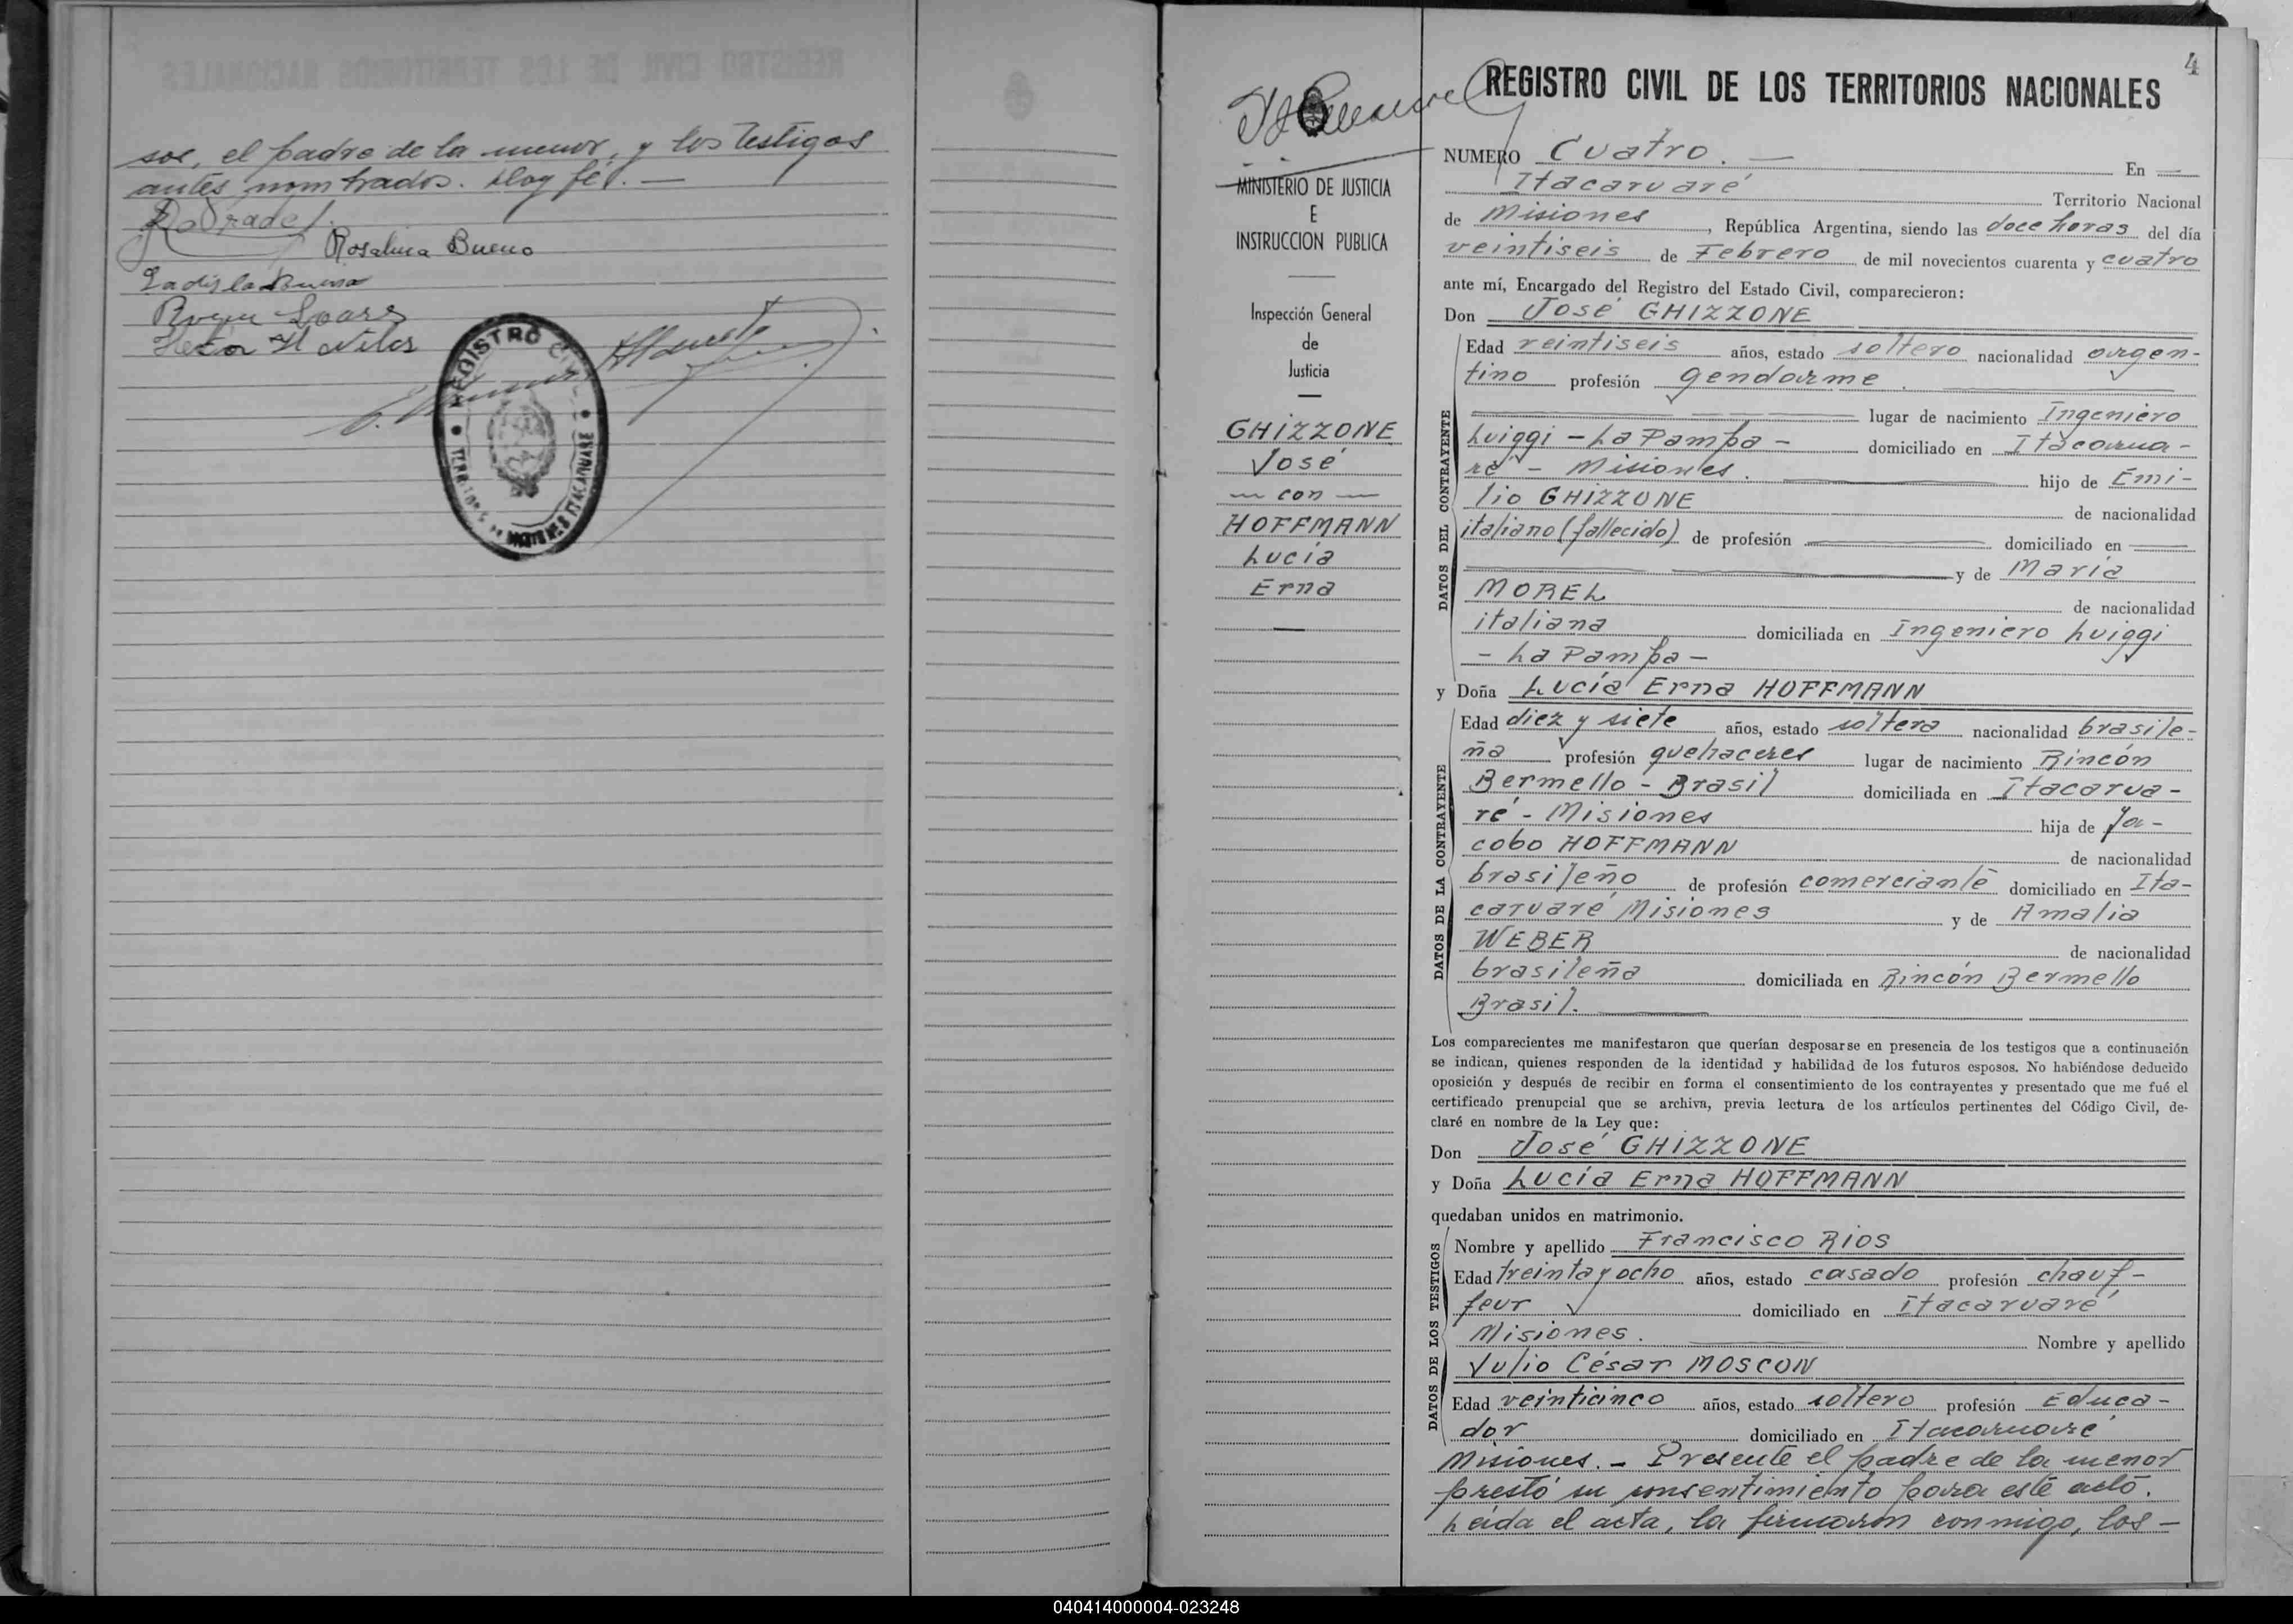 sos, el padre de la menor, y los testigos
antes nombrados. Doy fé. —
Rosalina Bueno
Hector H
REGISTRO CIVIL
4
REGISTRO CIVIL DE LOS TERRITORIOS NACIONALES
MINISTERIO DE JUSTICIA
E
INSTRUCCION PUBLICA
Inspección General
de
Justicia
GHIZZONE
José
— con —
HOFFMANN
Lucía
Erna
NUMERO Cuatro. — En
Itacaruaré Territorio Nacional
de Misiones, República Argentina, siendo las doce horas del día
veintiseis de Febrero de mil novecientos cuarenta y cuatro
ante mí, Encargado del Registro del Estado Civil, comparecieron:
Don José GHIZZONE
DATOS DEL CONTRAYENTE
Edad veintiseis años, estado soltero nacionalidad argen-
tino profesión gendarme.
lugar de nacimiento Ingeniero
Luiggi – La Pampa – domiciliado en Itacarua-
ré – Misiones. hijo de Emi-
lio GHIZZONE de nacionalidad
italiano (fallecido) de profesión domiciliado en
y de María
MOREL de nacionalidad
italiana domiciliada en Ingeniero Luiggi
– La Pampa –
y Doña Lucía Erna HOFFMANN
DATOS DE LA CONTRAYENTE
Edad diez y siete años, estado soltera nacionalidad brasile-
ña profesión quehaceres lugar de nacimiento Rincón
Bermello – Brasil domiciliada en Itacarua-
ré - Misiones hija de Ja-
cobo HOFFMANN de nacionalidad
brasileño de profesión comerciante domiciliado en Ita-
caruaré Misiones y de Amalia
WEBER de nacionalidad
brasileña domiciliada en Rincón Bermello
Brasil.
Los comparecientes me manifestaron que querían desposarse en presencia de los testigos que a continuación
se indican, quienes responden de la identidad y habilidad de los futuros esposos. No habiéndose deducido
oposición y después de recibir en forma el consentimiento de los contrayentes y presentado que me fué el
certificado prenupcial que se archiva, previa lectura de los artículos pertinentes del Código Civil, de-
claré en nombre de la Ley que:
Don José GHIZZONE
y Doña Lucía Erna HOFFMANN
quedaban unidos en matrimonio.
DATOS DE LOS TESTIGOS
Nombre y apellido Francisco RIOS
Edad treinta y ocho años, estado casado profesión chauf-
feur domiciliado en Itacaruaré,
Misiones. Nombre y apellido
Julio César MOSCON
Edad veinticinco años, estado soltero profesión Educa-
dor domiciliado en Itacaruaré
Misiones. – Presente el padre de la menor
prestó su consentimiento para este acto.
Leída el acta, la firmaron conmigo, los –
040414000004-023248